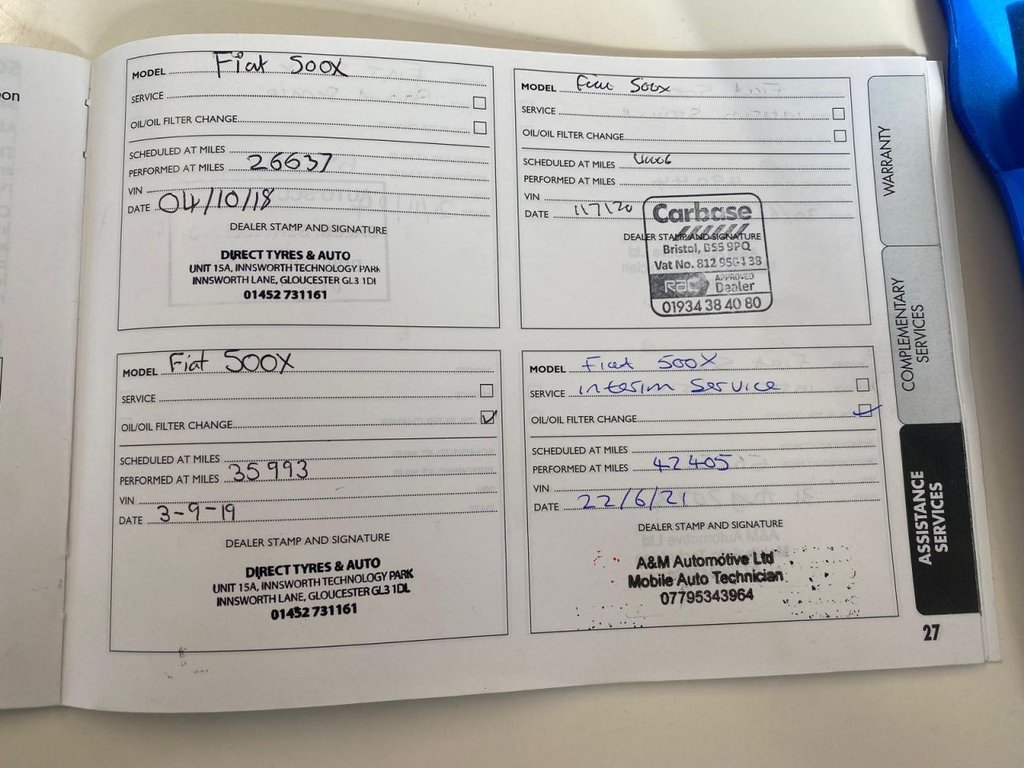 oon
MODEL Fiat 500X
SERVICE
OIL/OIL FILTER CHANGE
SCHEDULED AT MILES
PERFORMED AT MILES 26637
VIN
DATE 04/10/18
DEALER STAMP AND SIGNATURE
DIRECT TYRES & AUTO
UNIT 15A, INNSWORTH TECHNOLOGY PARK
INNSWORTH LANE, GLOUCESTER GL3 1DL
01452 731161
MODEL Fiat 500x
SERVICE
OIL/OIL FILTER CHANGE
SCHEDULED AT MILES
PERFORMED AT MILES
VIN
DATE 1/7/20
DEALER STAMP AND SIGNATURE
Carbase
Bristol, BS5 9PQ
Vat No. 812 9504 38
RAC APPROVED Dealer
01934 38 40 80
MODEL Fiat 500X
SERVICE
OIL/OIL FILTER CHANGE
SCHEDULED AT MILES
PERFORMED AT MILES 35993
VIN
DATE 3-9-19
DEALER STAMP AND SIGNATURE
DIRECT TYRES & AUTO
UNIT 15A, INNSWORTH TECHNOLOGY PARK
INNSWORTH LANE, GLOUCESTER GL3 1DL
01452 731161
MODEL Fiat 500X
SERVICE interim Service
OIL/OIL FILTER CHANGE
SCHEDULED AT MILES
PERFORMED AT MILES 42405
VIN
DATE 22/6/21
DEALER STAMP AND SIGNATURE
A&M Automotive Ltd
Mobile Auto Technician
07795343964
WARRANTY
COMPLEMENTARY
SERVICES
ASSISTANCE
SERVICES
27